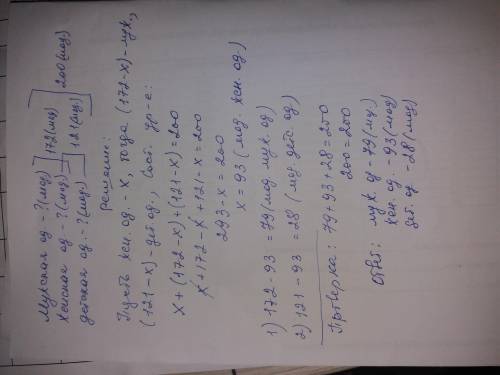 Мужская од - ?(мод) ] 172(мод) ] 200(мод)
Женская од - ?(мод) ] 121(мод)
детская од. - ?(мод)
Решение:
Пусть жен. од. - х, тогда (172-х) - муж.,
(121-х) - дет од., Сост. ур-е:
х + (172-х) + (121-х) = 200
х + 172 - х + 121 - х = 200
293 - х = 200
х = 93 (мод. жен. од.)
1) 172 - 93 = 79 (мод муж. од)
2) 121 - 93 = 28 (мод дет. од)
Проверка: 79 + 93 + 28 = 200
200 = 200
Ответ: муж. од - 79 (мод)
жен. од. - 93 (мод)
дет. од - 28 (мод)